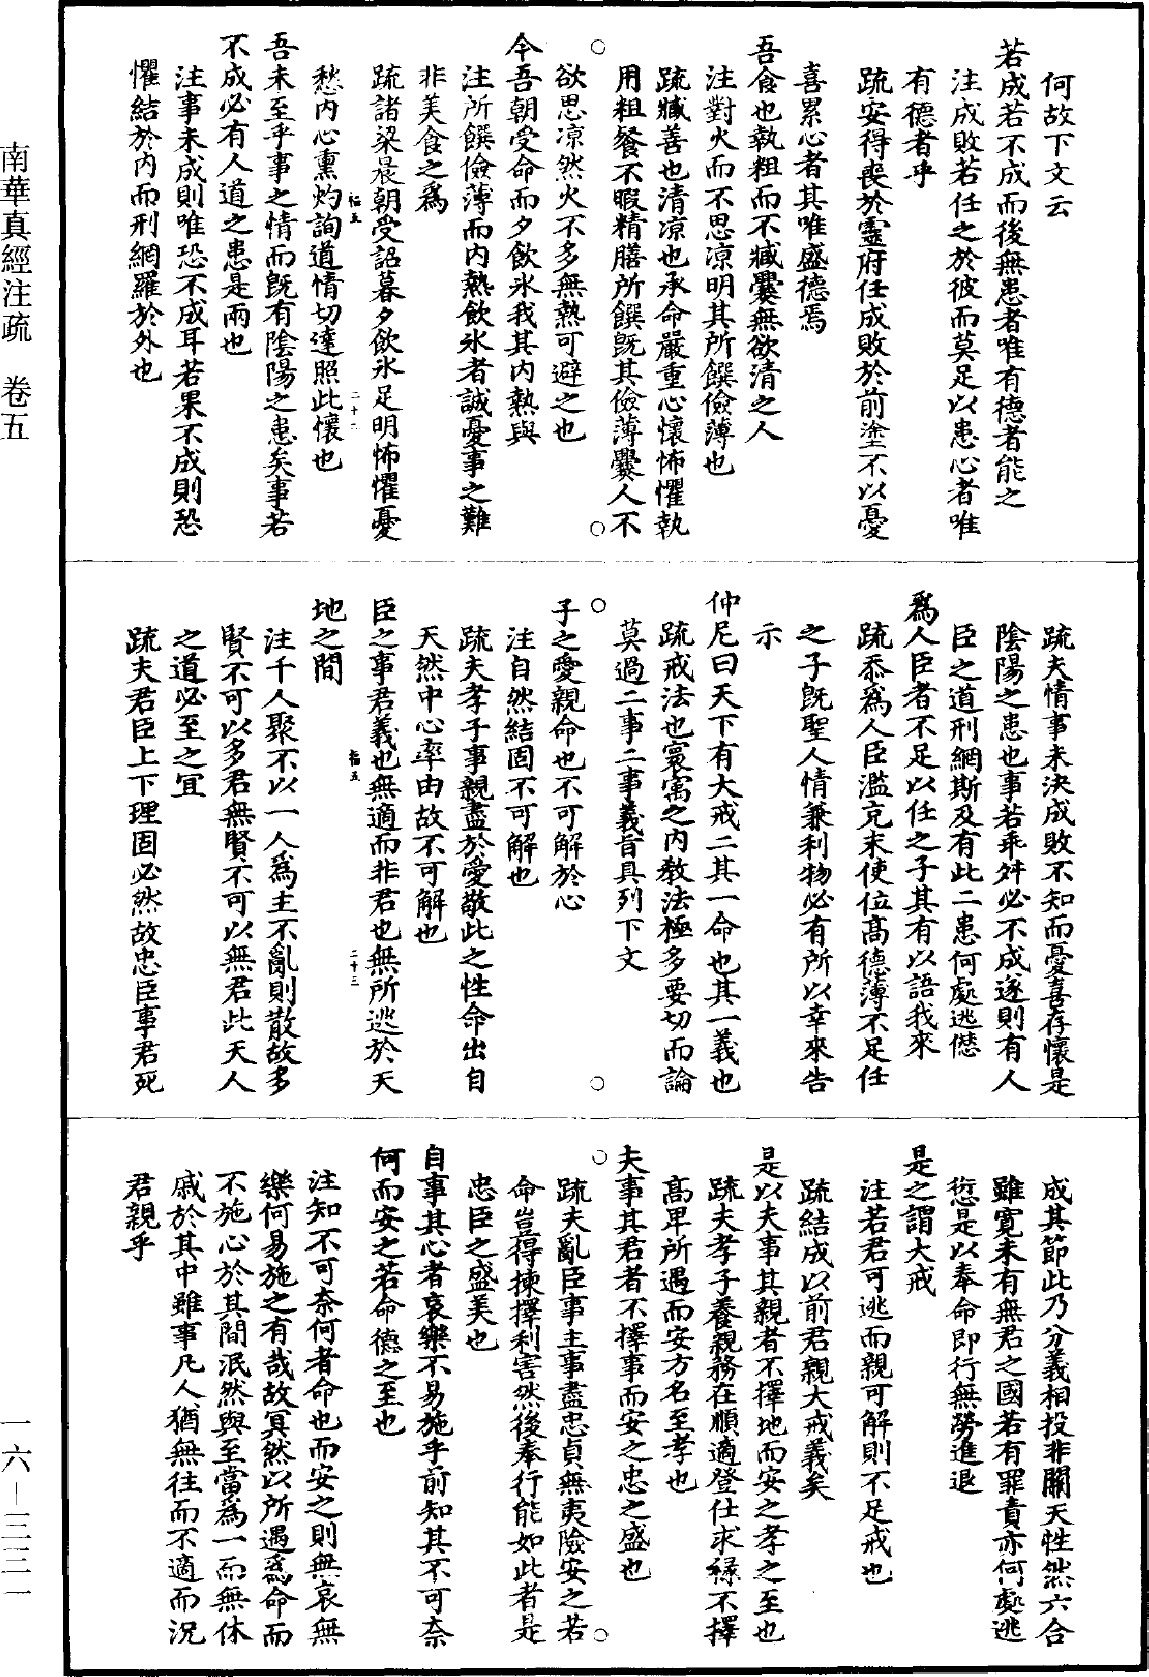 何故下文云
若成若不成而後無患者唯有德者能之
注成敗若任之於彼而莫足以患心者唯
有德者乎
疏安得喪於靈府任成敗於前塗不以憂
喜累心者其唯盛德焉
吾食也執粗而不臧爨無欲清之人
注對火而不思凉明其所饌儉薄也
疏臧善也清凉也承命嚴重心懷怖懼執
用粗餐不暇精膳所饌既其儉薄爨人不
欲思凉然火不多無熱可避之也
今吾朝受命而夕飲氷我其内熱與
注所饌儉薄而内熱飲氷者誠憂事之難
非美食之爲
疏諸梁晨朝受詔暮夕飲氷足明怖懼憂
愁内心熏灼詢道情切達照此懷也
吾未至乎事之情而既有陰陽之患矣事若
不成必有人道之患是兩也
注事未成則唯恐不成耳若果不成則恐
懼結於内而刑網羅於外也
疏夫情事未決成敗不知而憂喜存懷是
陰陽之患也事若乖舛必不成遂則有人
臣之道刑網斯及有此二患何處逃愆
爲人臣者不足以任之子其有以語我來
疏忝爲人臣濫充末使位高德薄不足任
之子既聖人情兼利物必有所以幸來告
示
仲尼曰天下有大戒二其一命也其一義也
疏戒法也寰㝢之内教法極多要切而論
莫過二事二事義旨具列下文
子之愛親命也不可解於心
注自然結固不可解也
疏夫孝子事親盡於愛敬此之性命出自
天然中心率由故不可解也
臣之事君義也無適而非君也無所逃於天
二十三
地之間
注千人聚不以一人爲主不亂則散故多
賢不可以多君無賢不可以無君此天人
之道必至之宜
疏夫君臣上下理固必然故忠臣事君死
成其節此乃分義相投非關天性然六合
雖寬未有無君之國若有罪責亦何處逃
愆是以奉命即行無勞進退
是之謂大戒
注若君可逃而親可解則不足戒也
疏結成以前君親大戒義矣
是以夫事其親者不擇地而安之孝之至也
疏夫孝子養親務在順適登仕求祿不擇
高卑所遇而安方名至孝也
夫事其君者不擇事而安之忠之盛也
疏夫亂臣事主事盡忠貞無夷險安之若
命豈得揀擇利害然後奉行能如此者是
忠臣之盛美也
自事其心者哀樂不易施乎前知其不可奈
何而安之若命德之至也
注知不可奈何者命也而安之則無哀無
樂何易施之有哉故冥然以所遇爲命而
不施心於其間泯然與至當爲一而無休
戚於其中雖事凡人猶無往而不適而況
君親乎
南華真經注疏 卷五
一六－三三一